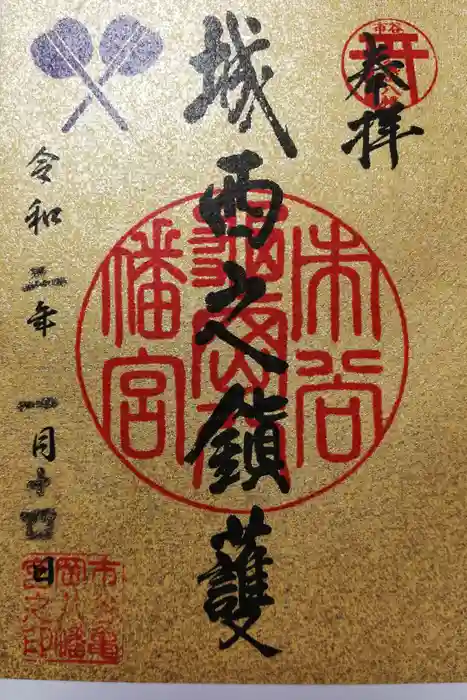 奉拝
城西之鎮護
令和三年 一月十四日
市谷
亀岡八
幡宮
市谷亀
岡八幡
宮之印